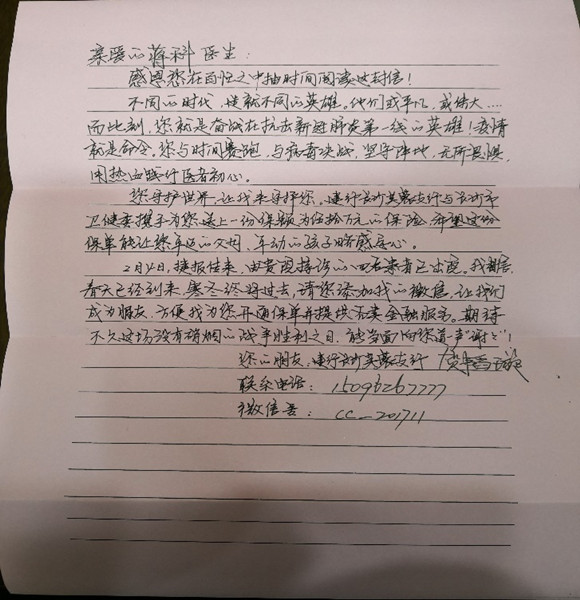 亲爱的蒋科医生:
感恩您在百忙之中抽时间阅读这封信!
不同的时代,造就不同的英雄。他们或平凡,或伟大……
而此刻,您就是奋战在抗击新冠肺炎第一线的英雄!疫情
就是命令。您与时间赛跑,与病毒决战,坚守阵地,无所畏惧,
用热血践行医者初心。
您守护世界,让我来守护您。建行长沙芙蓉支行与长沙市
卫健委携手为您送上一份保额为伍拾万元的保险,希望这份
保单能让您年迈的父母,年幼的孩子略感安心。
2月4日,捷报传来,由贵院接诊的四名患者已出院。我相信
春天已经到来,寒冬终将过去,请您添加我的微信,让我们
成为朋友,方便我为您开通保单并提供专卖金融服务。期待
不久这场没有硝烟的战争胜利之日,能当面向您道一声"谢谢"!
您的朋友:建行长沙芙蓉支行
联系电话:15096267777
微信号:cc_201711